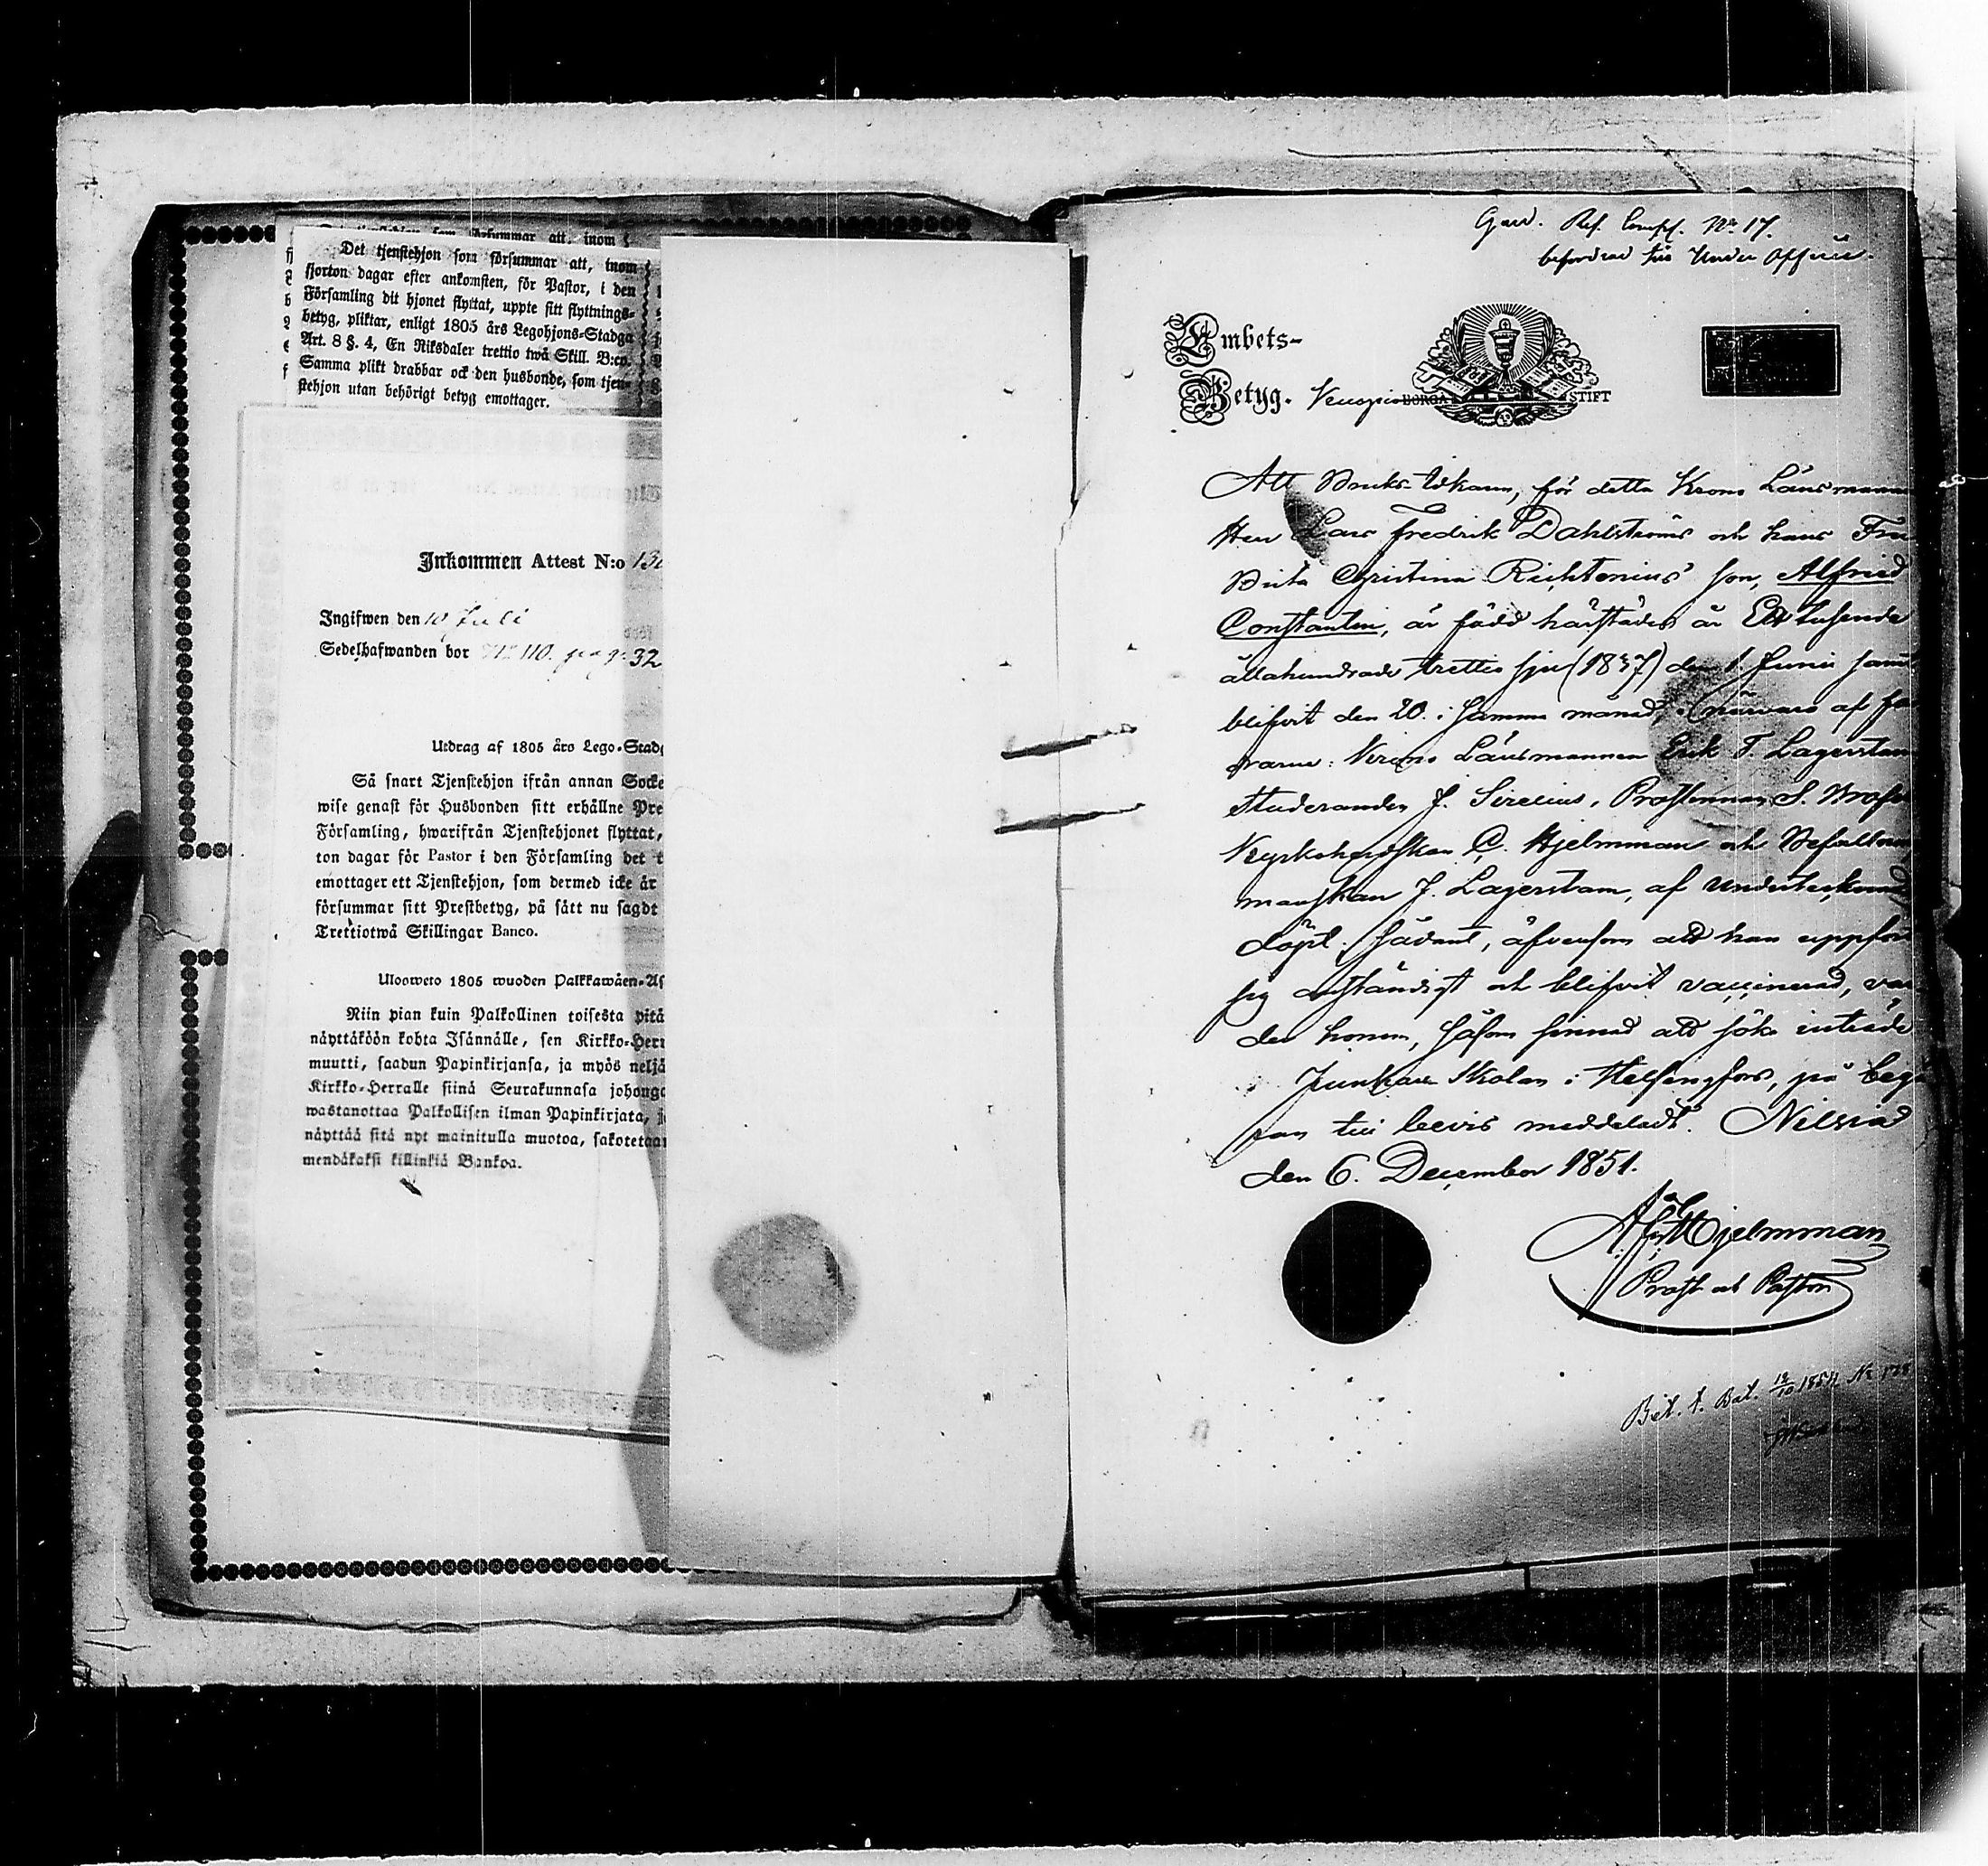 Det tjenstehjon som försummar att, inom
fjorton dagar efter ankomsten, för Pastor, i den
Församling dit hjonet flyttat, uppte sitt flyttnings-
betyg, pliktar, enligt 1805 års Legohjons-Stadga
Art. 8 §. 4, En Riksdaler trettio twå Skill. B:co.
Samma plikt drabbar ock den husbonde, som tjen-
stehjon utan behörigt betyg emottager.
Inkommen Attest N:o
Ingifwen den 10 Juli
Sedelhafwanden bor N:o 110. pag: 32
Utdrag af 1805 års Lego-Stadg
Så snart Tjenstehjon ifrån annan Socke
wise genast för Husbonden sitt erhållne Pre
Församling, hwarifrån Tjenstehjonet flyttat,
ton dagar för Pastor i den Församling det t
emottager ett Tjenstehjon, som dermed icke är
försummar sitt Prestbetyg, på sätt nu sagdt
Trettiotwå Skillingar Banco.
Uloosweto 1805 wuoden Palkkawäen-As
Niin pian kuin Palkollinen toisesta pitä
näyttäköön kohta Isännälle, sen Kirkko-Herr
muutti, saadun Papinkirjansa, ja myös neljä
Kirkko-Herralle siinä Seurakunnasa johonga
wastanottaa Palkollisen ilman Papinkirjata, j
näyttää sitä nyt mainitulla muotoa, sakotetaan
mendäkaksi killinkiä Bankoa.
Gard. Res. Comp. No 17.
befordrad till Under Officer.
Embets-
Betyg. Kuopio BORGÅ STIFT
Att Bruks-Idkaren, för detta Krono Länsmannen
Herr Lars Fredrik Dahlströms och hans Fru
Brita Christina Richtenius' son, Alfred
Constantin, är född härstädes år Ett tusende
åttahundrade trettio sju (1837) den 1. Junii samt
blifvit den 20. i samma månad, i närvaro af fa
drarne: Krono Länsmannen Erik F. Lagerstam
Studeranden J. Sirelius, Prostinnan S.
Kyrkoherdskan C. Hjelmman och Befallnings
manskan J. Lagerstam, af undertecknad
döpt. Sådant, äfvensom att han uppfört
sig anständigt och blifvit vaccinerad, var
der honom, såsom sinnad att söka inträde
i Junkare Skolan i Helsingfors, på begä
ran till bevis meddeladt. Nilsiä
den 6. December 1851.
Hjelmman
Prost och Pastor
Bet. t. Bat. 12/10 1854 No